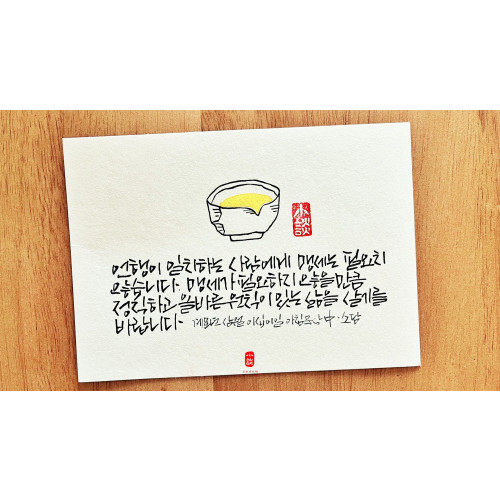 小談
언행이 일치하는 사람에게 맹세는 필요치
않습니다. 맹세가 필요하지 않을만큼
정직하고 올바른 원칙이 있는 삶을 살기를
바랍니다. 삼월 아침묵상 中. 소담
小談